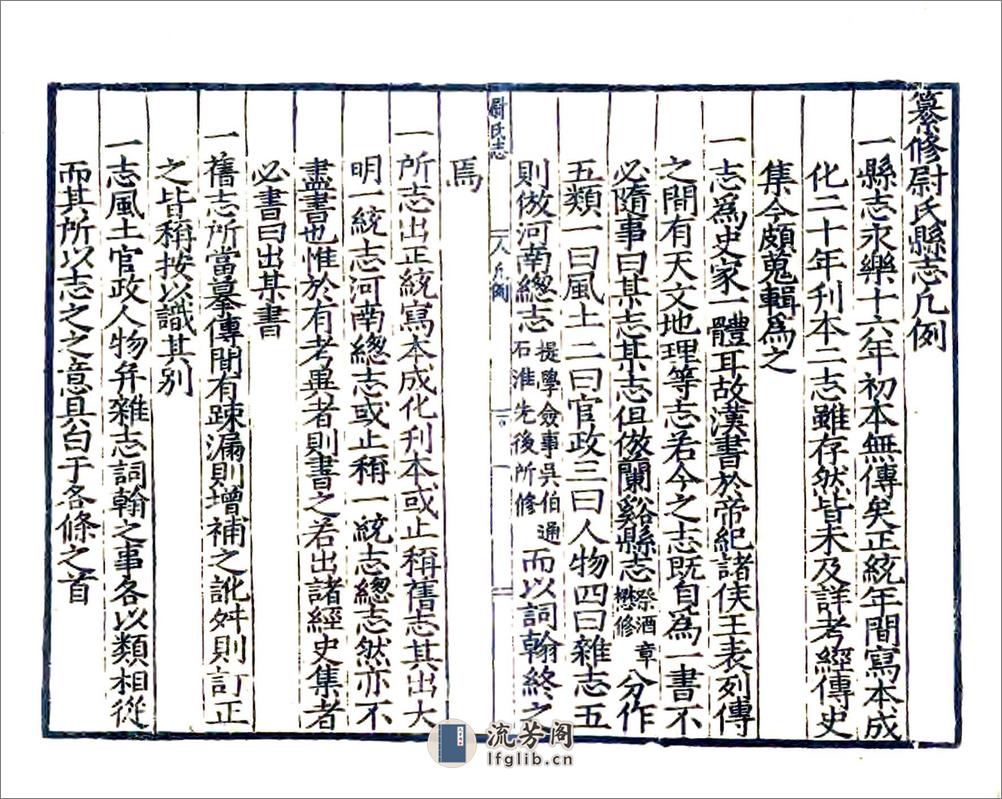 纂修尉氏縣志凡例
一縣志永樂十六年初本無傳矣正統年間寫本成
化二十年刋本二志雖存然皆未及詳考經傳史
集今頗蒐輯爲之
一志爲史家一體耳故漢書於帝紀諸侯王表列傳
之間有天文地理等志若今之志既自爲一書不
必隨事曰某志某志但倣蘭谿縣志祭酒章懋修分作
五類一曰風土二曰官政三曰人物四曰雜志五
則倣河南總志提學僉事吳伯通石淮先後所修而以詞翰終之
焉
尉氏志
凡例
一所志出正統寫本成化刋本或止稱舊志其出大
明一統志河南總志或止稱一統志總志然亦不
盡書也惟於有考異者則書之若出諸經史集者
必書曰出某書
一舊志所當摹傳間有疎漏則增補之訛舛則訂正
之皆稱按以識其别
一志風土官政人物并雜志詞翰之事各以類相從
而其所以志之之意具白于各條之首
流芳阁
lfglib.cn